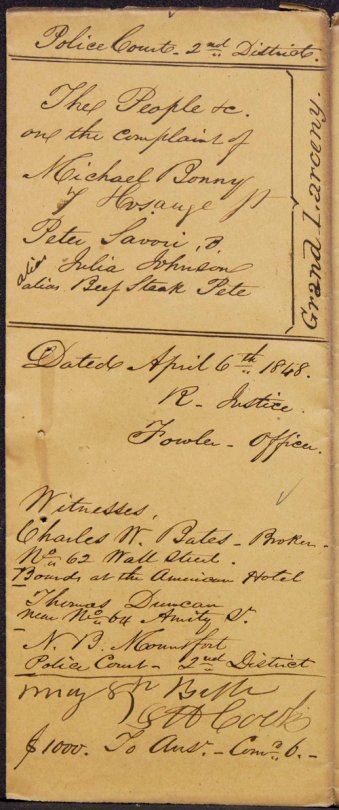 Police Court - 2nd District.
The People &c.
on the complaint of
Michael Bonny
Peter Savori, B.
alias Julia Johnson
alias Beef Steak Pete
Grand Larceny.
Dated April 6th 1848.
R - Justice.
Fowler - Officer.
Witnesses,
Charles W. Bates - Broker -
No 62 Wall Street.
Boards at the American Hotel
Thomas Duncan
near No 64 Amity St.
N. B. Mountfort
Police Court - 2nd District
May 8th
Cook
$1000. To Ans. - Com. 6. -